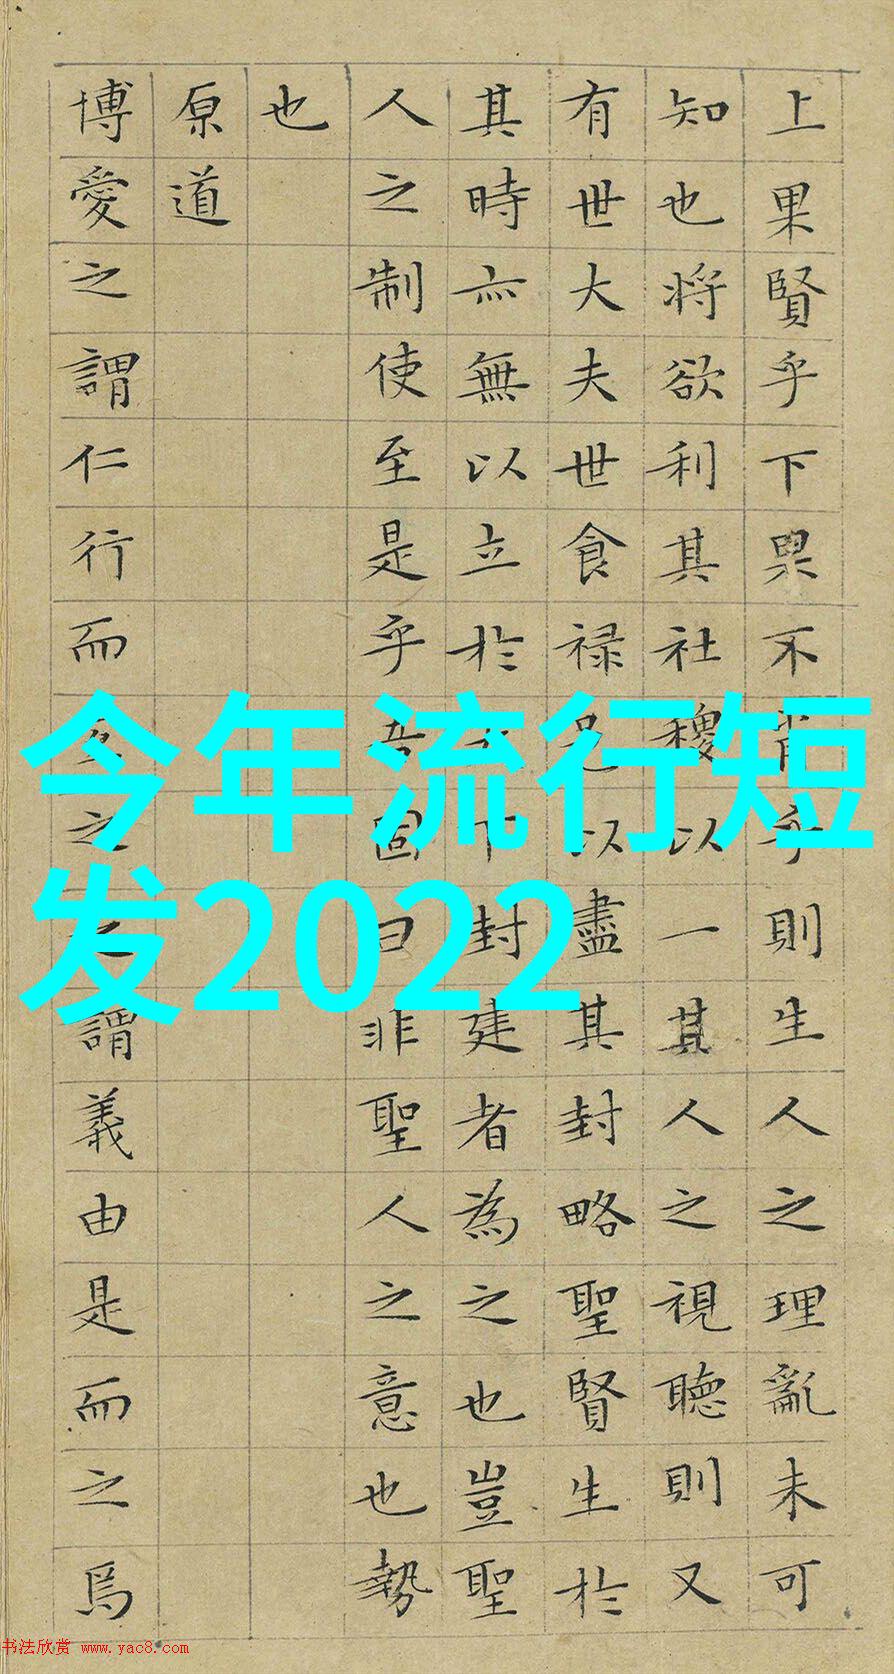 上果賢乎下果不肖乎則生人之理亂未可
知也将欲利其社稷以一其人之視聽則又
有世大夫世食禄邑以盡其封略聖賢生於
其時亦無以立於天下封建者為之也豈聖
人之制使至是乎吾固曰非聖人之意也勢
也
原道
博愛之謂仁行而宜之之謂義由是而之焉
今年流行短
发2022
书法欣赏 www.yac8.com